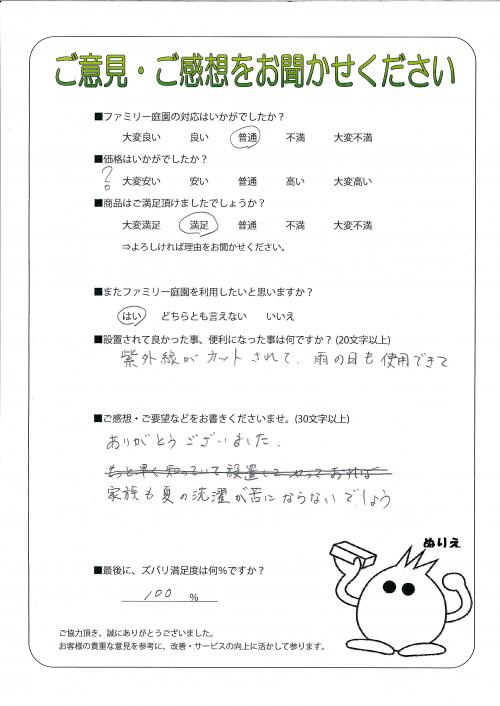 ご意見・ご感想をお聞かせください
■ファミリー庭園の対応はいかがでしたか？
大変良い 良い 普通 不満 大変不満
■価格はいかがでしたか？
? 大変安い 安い 普通 高い 大変高い
■商品はご満足頂けましたでしょうか？
大変満足 満足 普通 不満 大変不満
⇒よろしければ理由をお聞かせください。
■またファミリー庭園を利用したいと思いますか？
はい どちらとも言えない いいえ
■設置されて良かった事、便利になった事は何ですか？(20文字以上)
紫外線がカットされて、雨の日も使用できて
■ご感想・ご要望などをお書きくださいませ。(30文字以上)
ありがとうございました.
もっと早く知っていて設置してやっておれば
家族も夏の洗濯が苦にならないでしょう
ぬりえ
■最後に、ズバリ満足度は何%ですか？
100 %
ご協力頂き、誠にありがとうございました。
お客様の貴重な意見を参考に、改善・サービスの向上に活かして参ります。